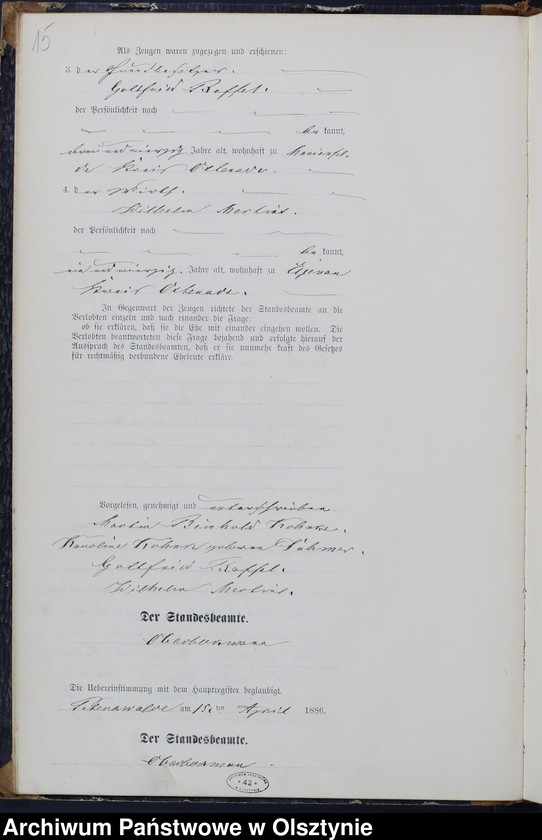 15
Als Zeugen waren zugezogen und erschienen:
3. der Grundbesitzer
Gottfried Raffel.
der Persönlichkeit nach
be kannt,
dreiundvierzig Jahre alt, wohnhaft zu
Kreis Osterode.
4. der Wirth.
Wilhelm
der Persönlichkeit nach
be kannt,
einundvierzig Jahre alt, wohnhaft zu
Kreis Osterode.
In Gegenwart der Zeugen richtete der Standesbeamte an die
Verlobten einzeln und nach einander die Frage:
ob sie erklären, daß sie die Ehe mit einander eingehen wollen. Die
Verlobten beantworteten diese Frage bejahend und erfolgte hierauf der
Ausspruch des Standesbeamten, daß er sie nunmehr kraft des Gesetzes
für rechtmäßig verbundene Eheleute erkläre.
Vorgelesen, genehmigt und unterschrieben
Martin Reinhold
Karoline geborene
Gottfried Raffel.
Wilhelm
Der Standesbeamte.
Die Uebereinstimmung mit dem Hauptregister beglaubigt.
am 15ten April 1886.
Der Standesbeamte.
42
Archiwum Państwowe w Olsztynie